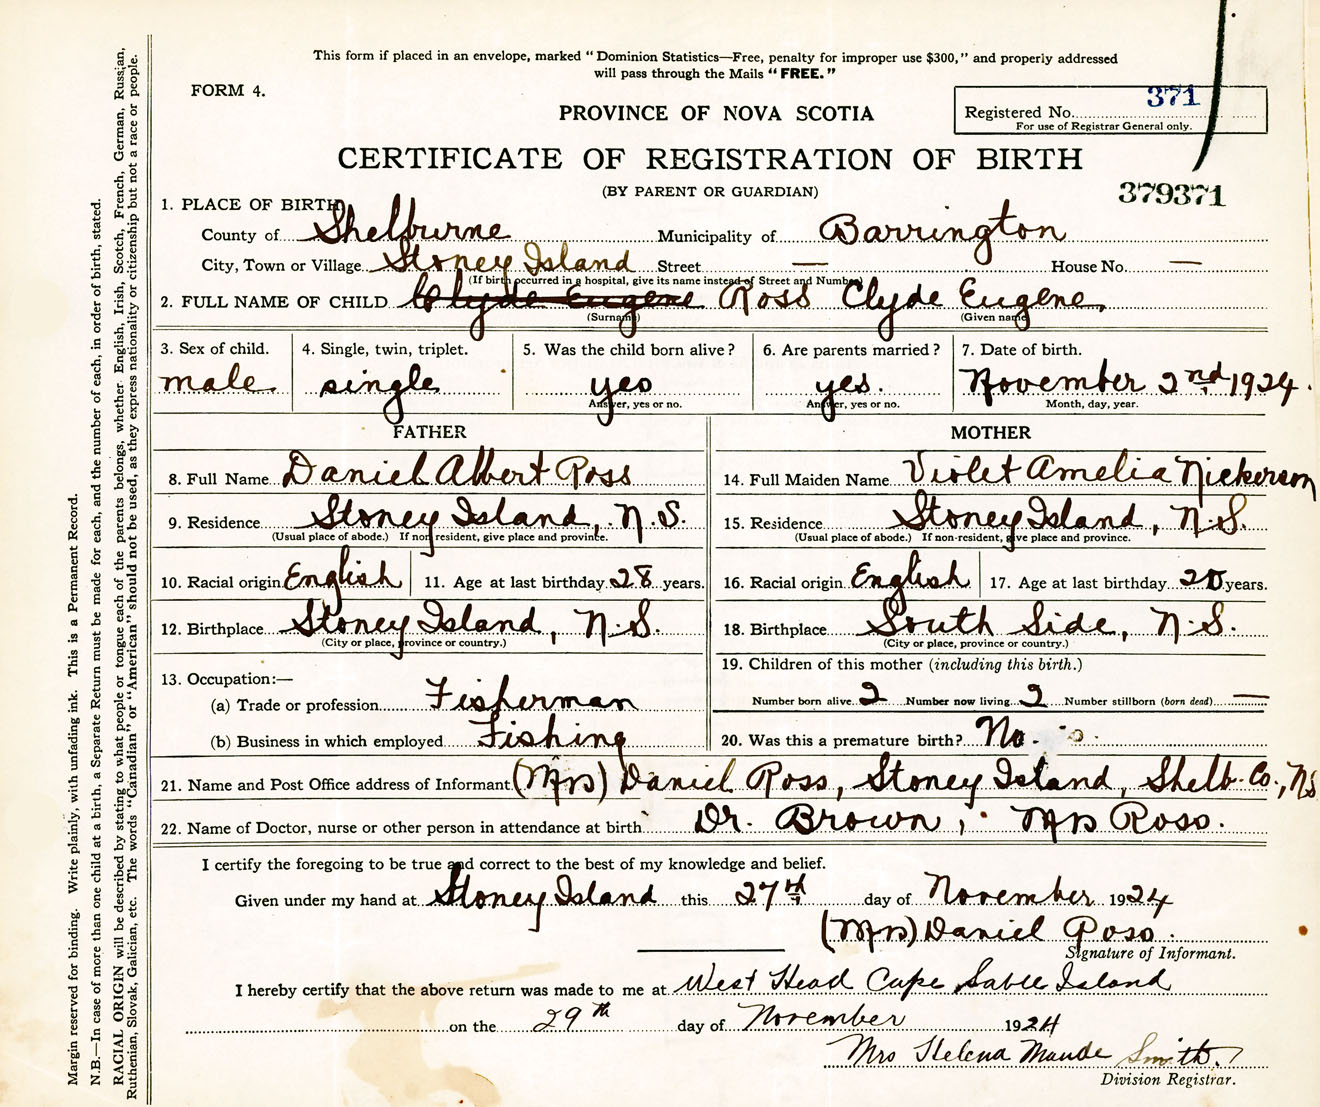 This form if placed in an envelope, marked "Dominion Statistics—Free, penalty for improper use $300," and properly addressed
will pass through the Mails "FREE."
FORM 4.
371
PROVINCE OF NOVA SCOTIA
Registered No.
For use of Registrar General only.
CERTIFICATE OF REGISTRATION OF BIRTH
(BY PARENT OR GUARDIAN)
379371
1. PLACE OF BIRTH
County of Shelburne Municipality of Barrington
City, Town or Village Stoney Island Street — House No. —
(If birth occurred in a hospital, give its name instead of Street and Number)
2. FULL NAME OF CHILD Clyde Eugene Ross Clyde Eugene,
(Surname) (Given name)
3. Sex of child. 4. Single, twin, triplet. 5. Was the child born alive? 6. Are parents married? 7. Date of birth.
male single yes yes. November 2nd 1924.
Answer, yes or no. Answer, yes or no. Month, day, year.
FATHER MOTHER
8. Full Name Daniel Albert Ross 14. Full Maiden Name Violet Amelia Nickerson
9. Residence Stoney Island, N.S. 15. Residence Stoney Island, N.S.
(Usual place of abode.) If non resident, give place and province. (Usual place of abode.) If non-resident, give place and province.
10. Racial origin English 11. Age at last birthday 28 years. 16. Racial origin English 17. Age at last birthday 20 years.
12. Birthplace Stoney Island, N.S. 18. Birthplace South Side, N.S.
(City or place, province or country.) (City or place, province or country.)
13. Occupation:— 19. Children of this mother (including this birth.)
(a) Trade or profession Fisherman Number born alive 2 Number now living 2 Number stillborn (born dead) —
(b) Business in which employed Fishing 20. Was this a premature birth? No.
21. Name and Post Office address of Informant (Mrs) Daniel Ross, Stoney Island, Shelb. Co., N.S
22. Name of Doctor, nurse or other person in attendance at birth Dr. Brown, Mrs Ross.
I certify the foregoing to be true and correct to the best of my knowledge and belief.
Given under my hand at Stoney Island this 27th day of November 1924
(Mrs) Daniel Ross.
Signature of Informant.
I hereby certify that the above return was made to me at West Head Cape Sable Island
on the 29th day of November 1924
Mrs Helena Maude Smith.
Division Registrar.
Margin reserved for binding. Write plainly, with unfading ink. This is a Permanent Record.
N.B.—In case of more than one child at a birth, a Separate Return must be made for each, and the number of each, in order of birth, stated.
RACIAL ORIGIN will be described by stating to what people or tongue each of the parents belongs, whether English, Irish, Scotch, French, German, Russian,
Ruthenian, Slovak, Galician, etc. The words "Canadian" or "American" should not be used, as they express nationality or citizenship but not a race or people.